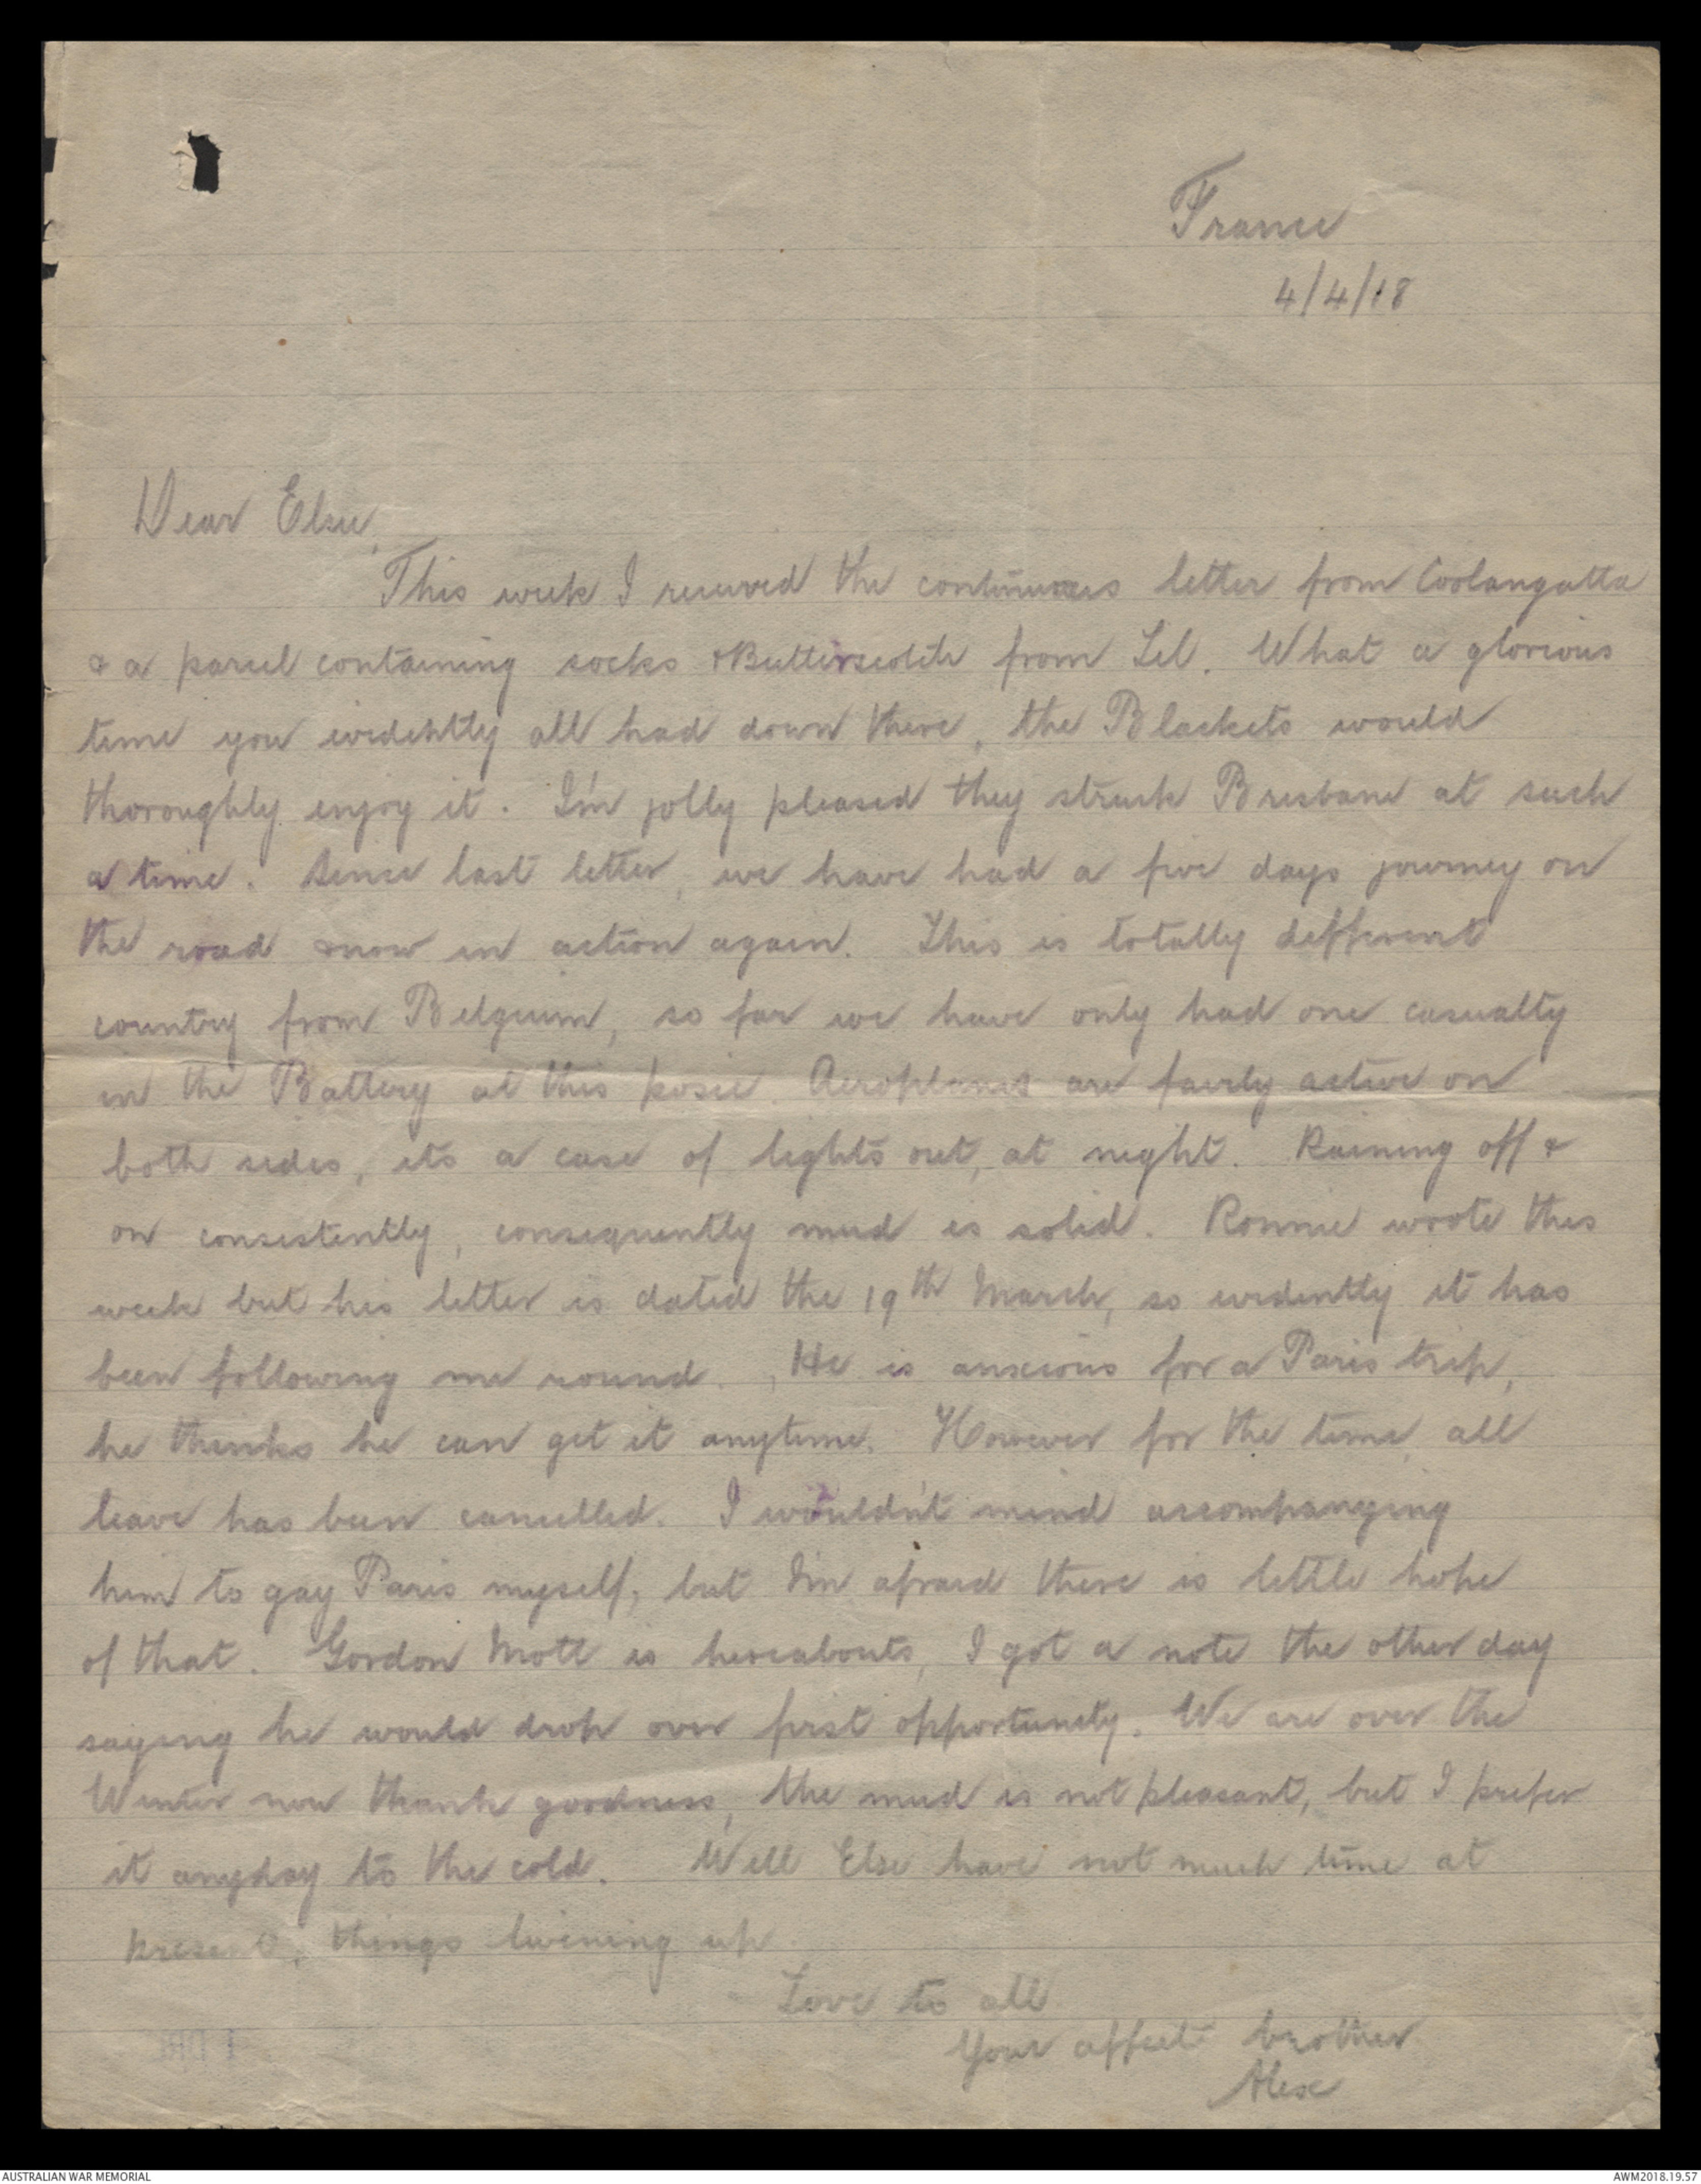 France
4/4/18
Dear Elsie,
This week I received the continuous letter from Coolangatta
& a parcel containing socks & Butterscotch from Lil. What a glorious
time you evidently all had down there, the Blackets would
thoroughly enjoy it. I'm jolly pleased they struck Brisbane at such
a time. Since last letter, we have had a five days journey on
the road & now in action again. This is totally different
country from Belgium, so far we have only had one casualty
in the Battery at this posie. Aeroplanes are fairly active on
both sides, its a case of lights out, at night. Raining off &
on consistently, consequently mud is solid. Ronnie wrote this
week but his letter is dated the 19th March, so evidently it has
been following me round. He is anxious for a Paris trip,
he thinks he can get it anytime. However for the time, all
leave has been cancelled. I wouldn't mind accompanying
him to gay Paris myself, but I'm afraid there is little hope
of that. Gordon Mott is hereabouts, I got a note the other day
saying he would drop over first opportunity. We are over the
Winter now thank goodness, the mud is not pleasant, but I prefer
it anyday to the cold. Well Else have not much time at
present, things livening up
Love to all
Your affect brother
Alex
AUSTRALIAN WAR MEMORIAL
AWM2018.19.57